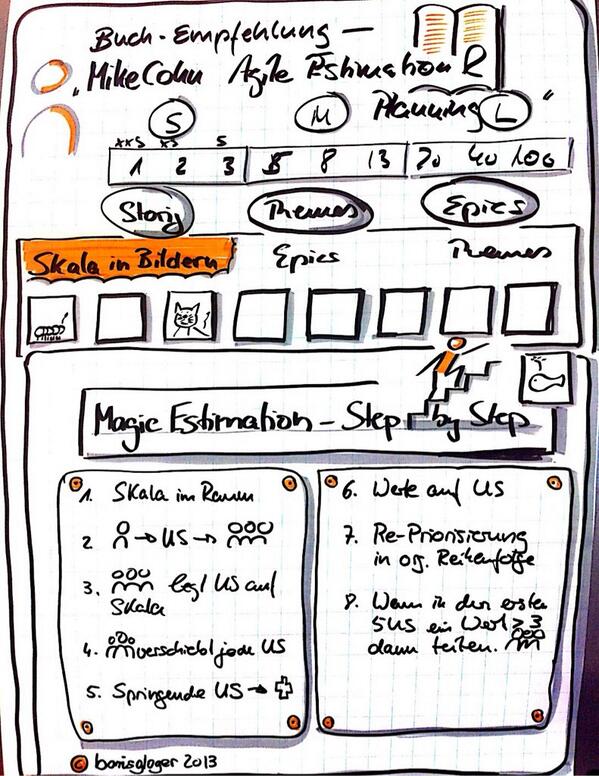 Buch-Empfehlung —
"Mike Cohn Agile Estimation &
Planning"
S M L
xxS xS S
1 2 3 5 8 13 20 40 100
Story Themes Epics
Skala in Bildern Epics Themes
Magic Estimation – Step by Step
1. Skala im Raum
2 → US →
3. legt US auf
Skala
4. verschiebt jede US
5. Springende US →
6. Werte auf US
7. Re-Priorisierung
in org. Reihenfolge
8. Wenn in den ersten
5US ein Wert ≥ 3
dann teilen.
© borisgloger 2013